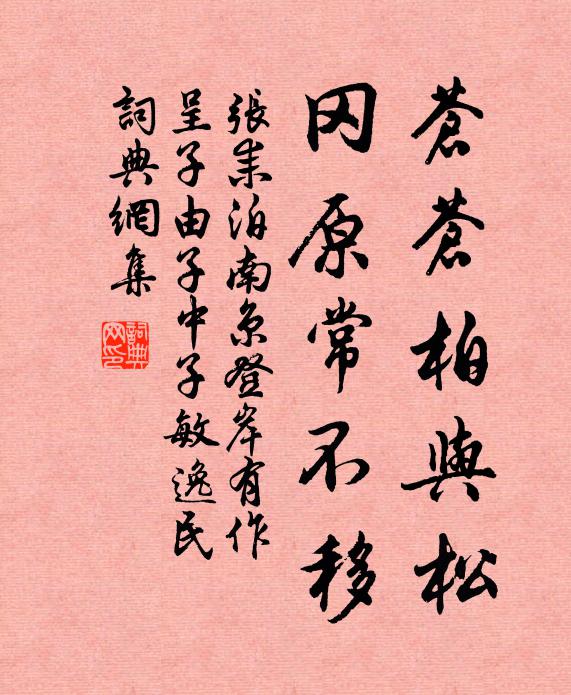 蒼蒼柏與松
冈原常不移
張耒泊南京登岸有作
呈子由子中子敏逸民
詞典網集
詞典
网印